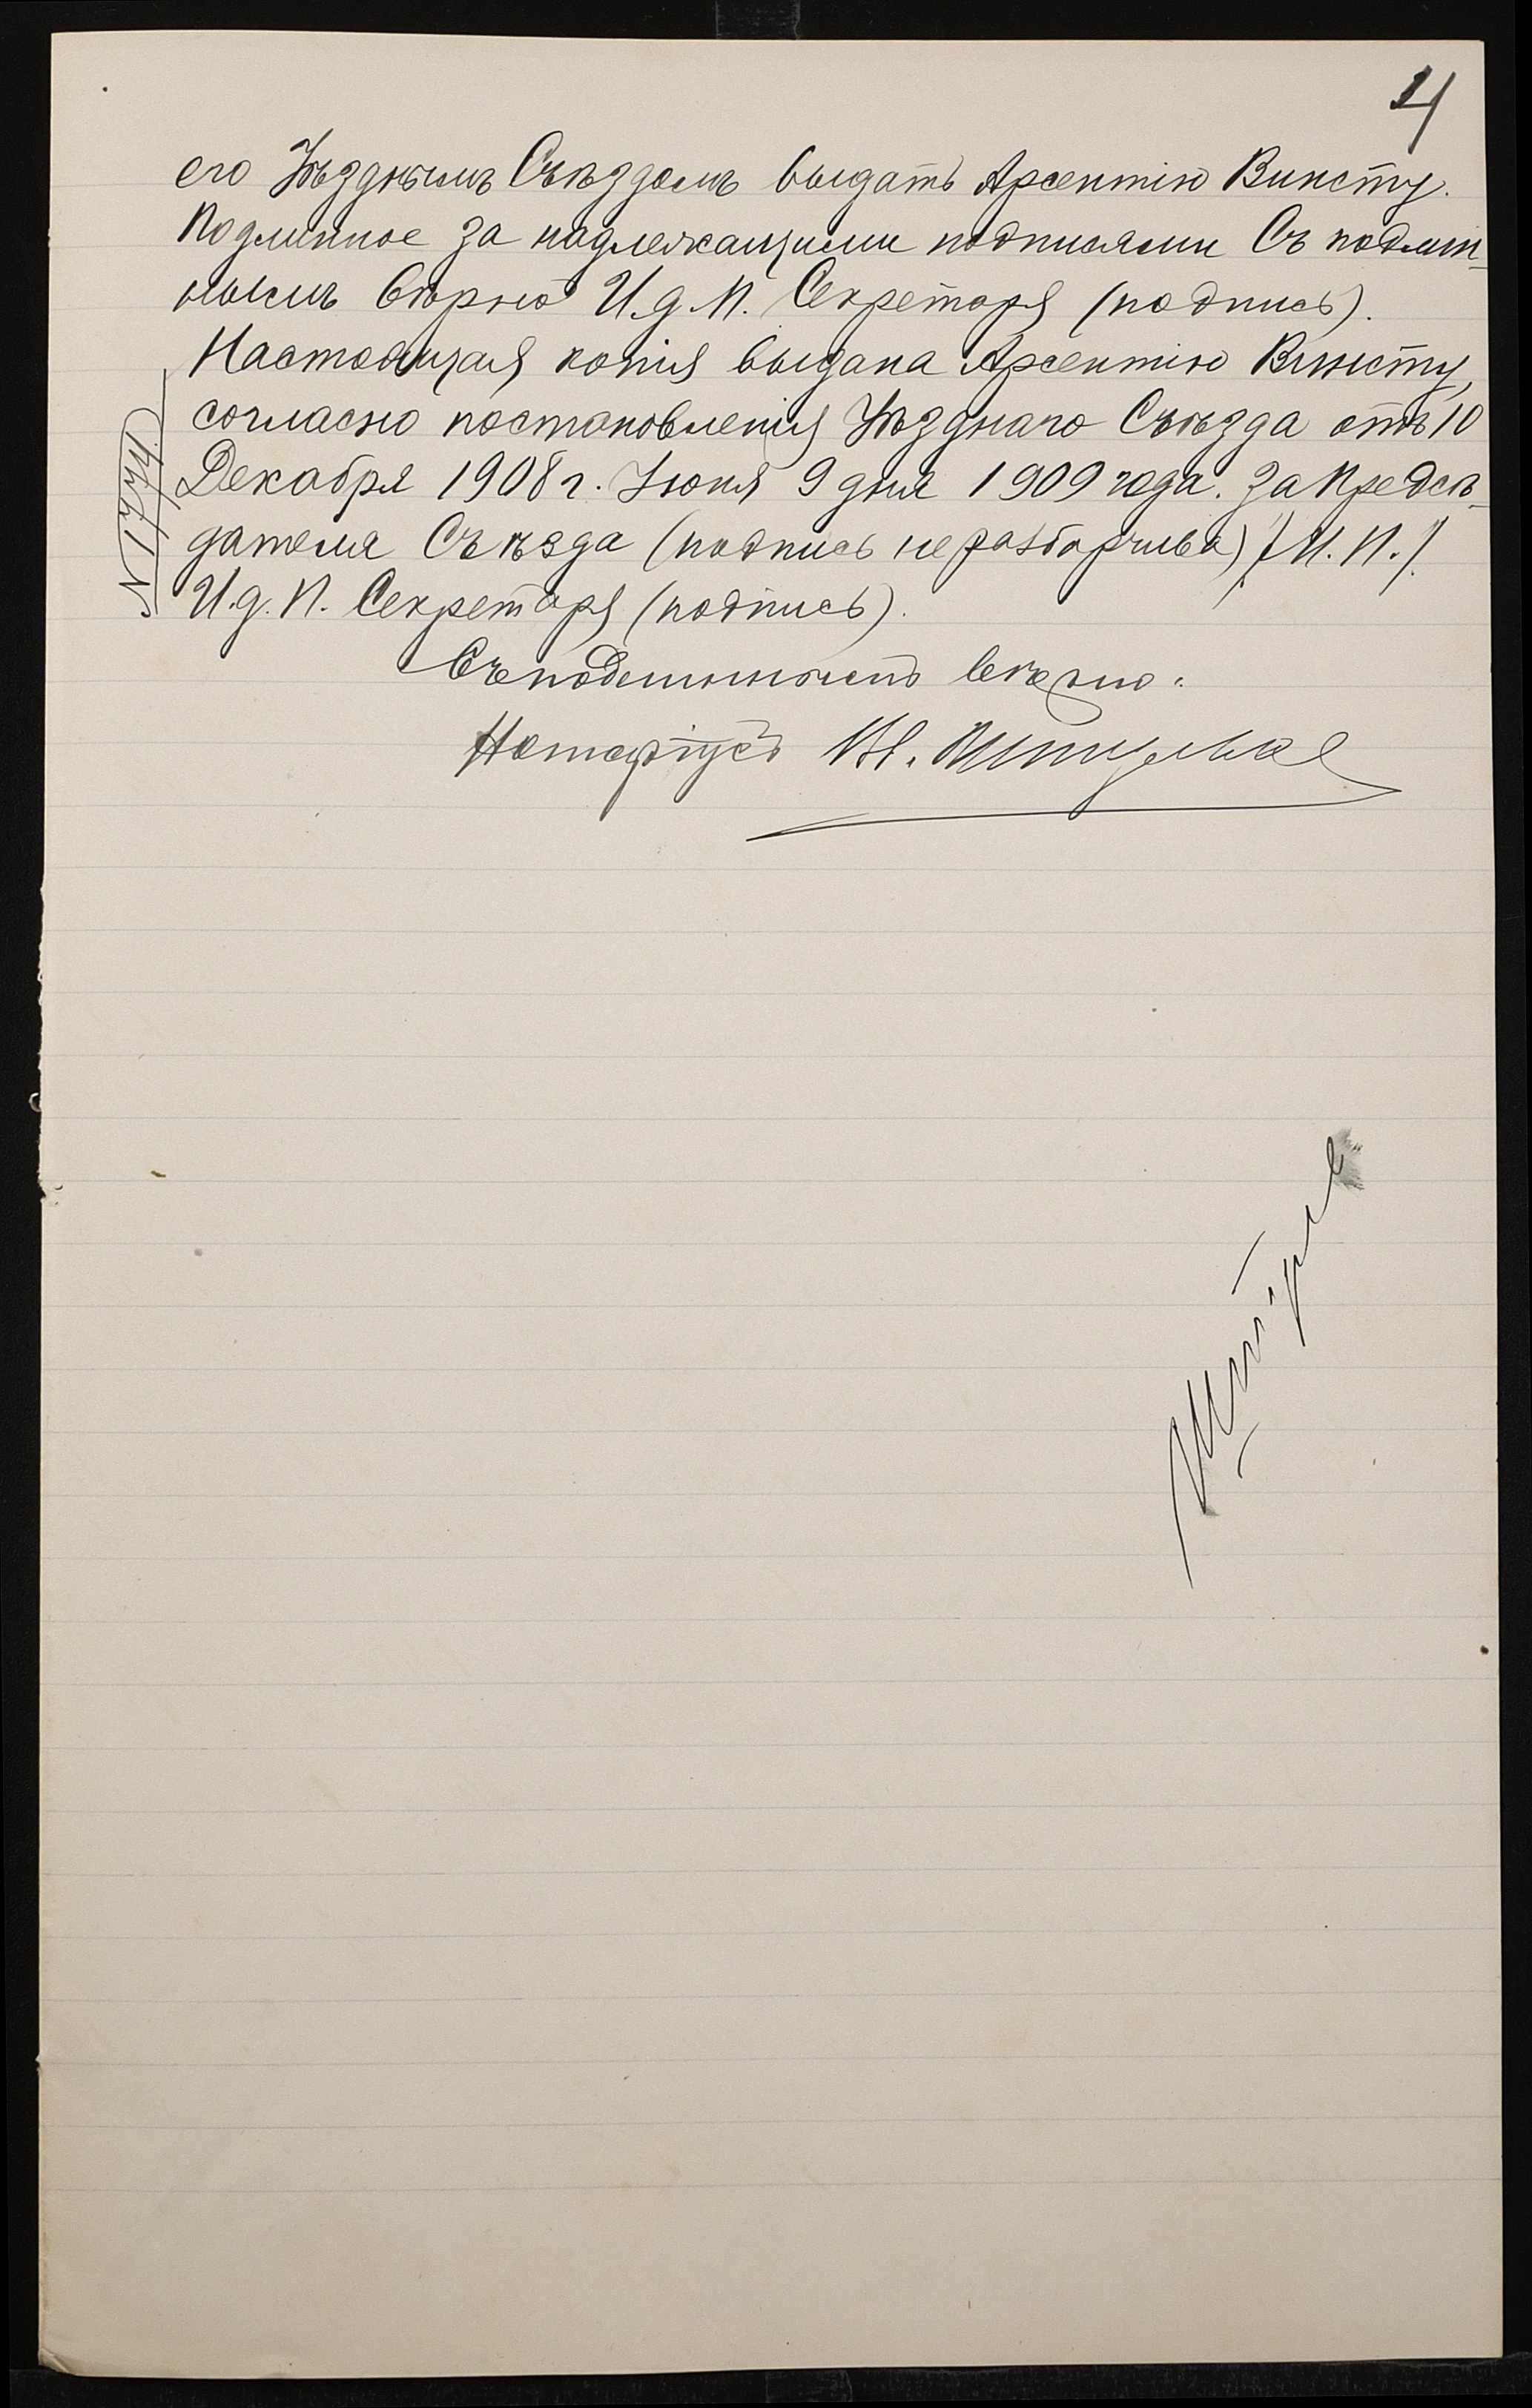 4
его Уѣзднымъ Съѣздомъ выдать Арсентію Винсту.
Подлинное за надлежащими подписями Съ подлин-
нымъ вѣрно И.д.П. Секретаря (подпись).
Настоящая копія выдана Арсентію Винсту,
согласно постановленія Уѣзднаго Съѣзда отъ 10
Декабря 1908 г. Іюня 9 дня 1909 года. За Предсѣ-
дателя Съѣзда (подпись неразборчива) /М.П./.
И.д.П. Секретаря (подпись).
Съ подлиннымъ вѣрно.
Нотаріусъ